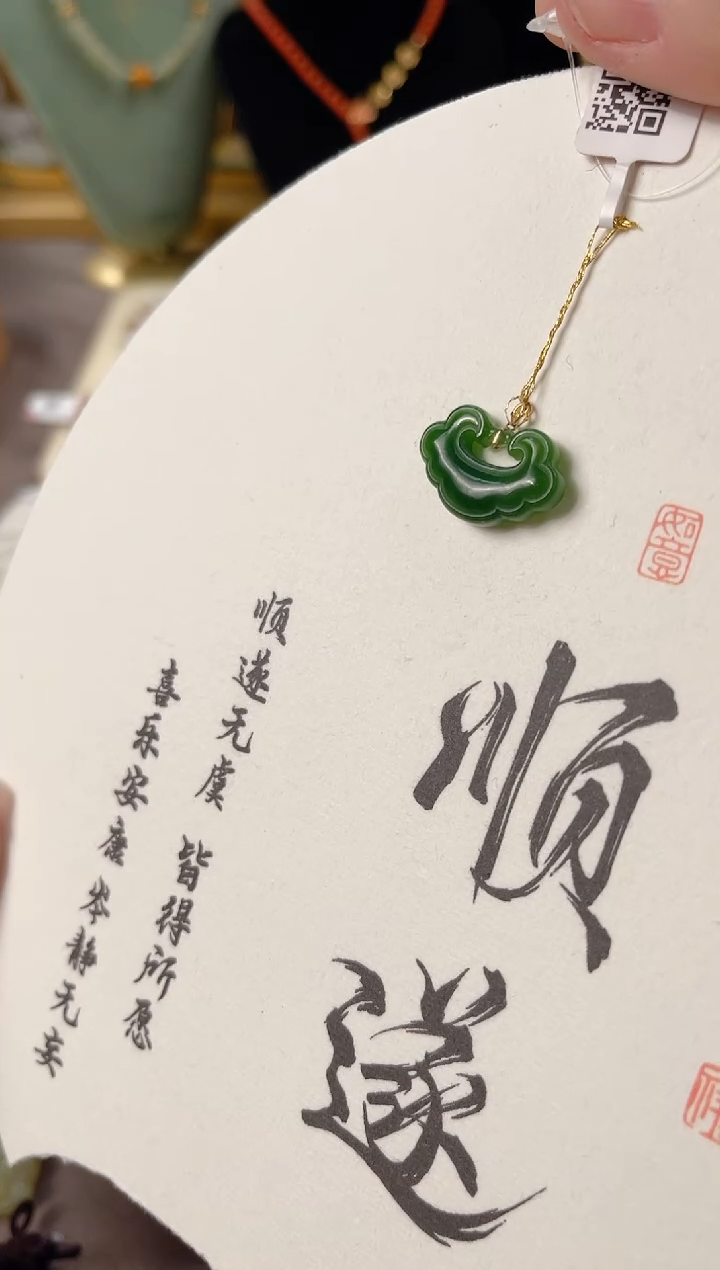 如意
顺遂
顺遂无虞 皆得所愿
喜乐安康 岑静无妄